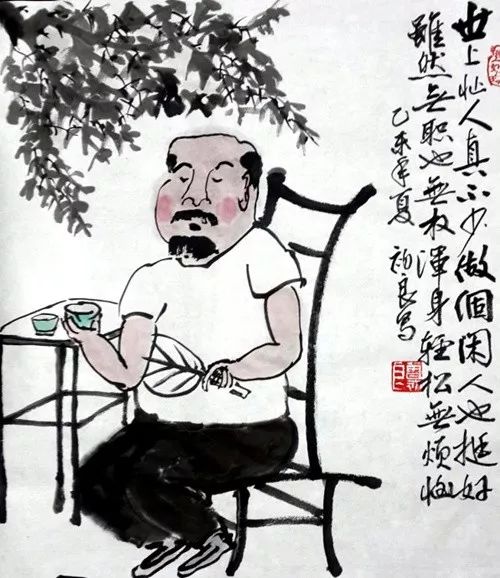 世上忙人真不少做個闲人也挺好
雖然无职也無权渾身輕松無煩恼
乙未年夏